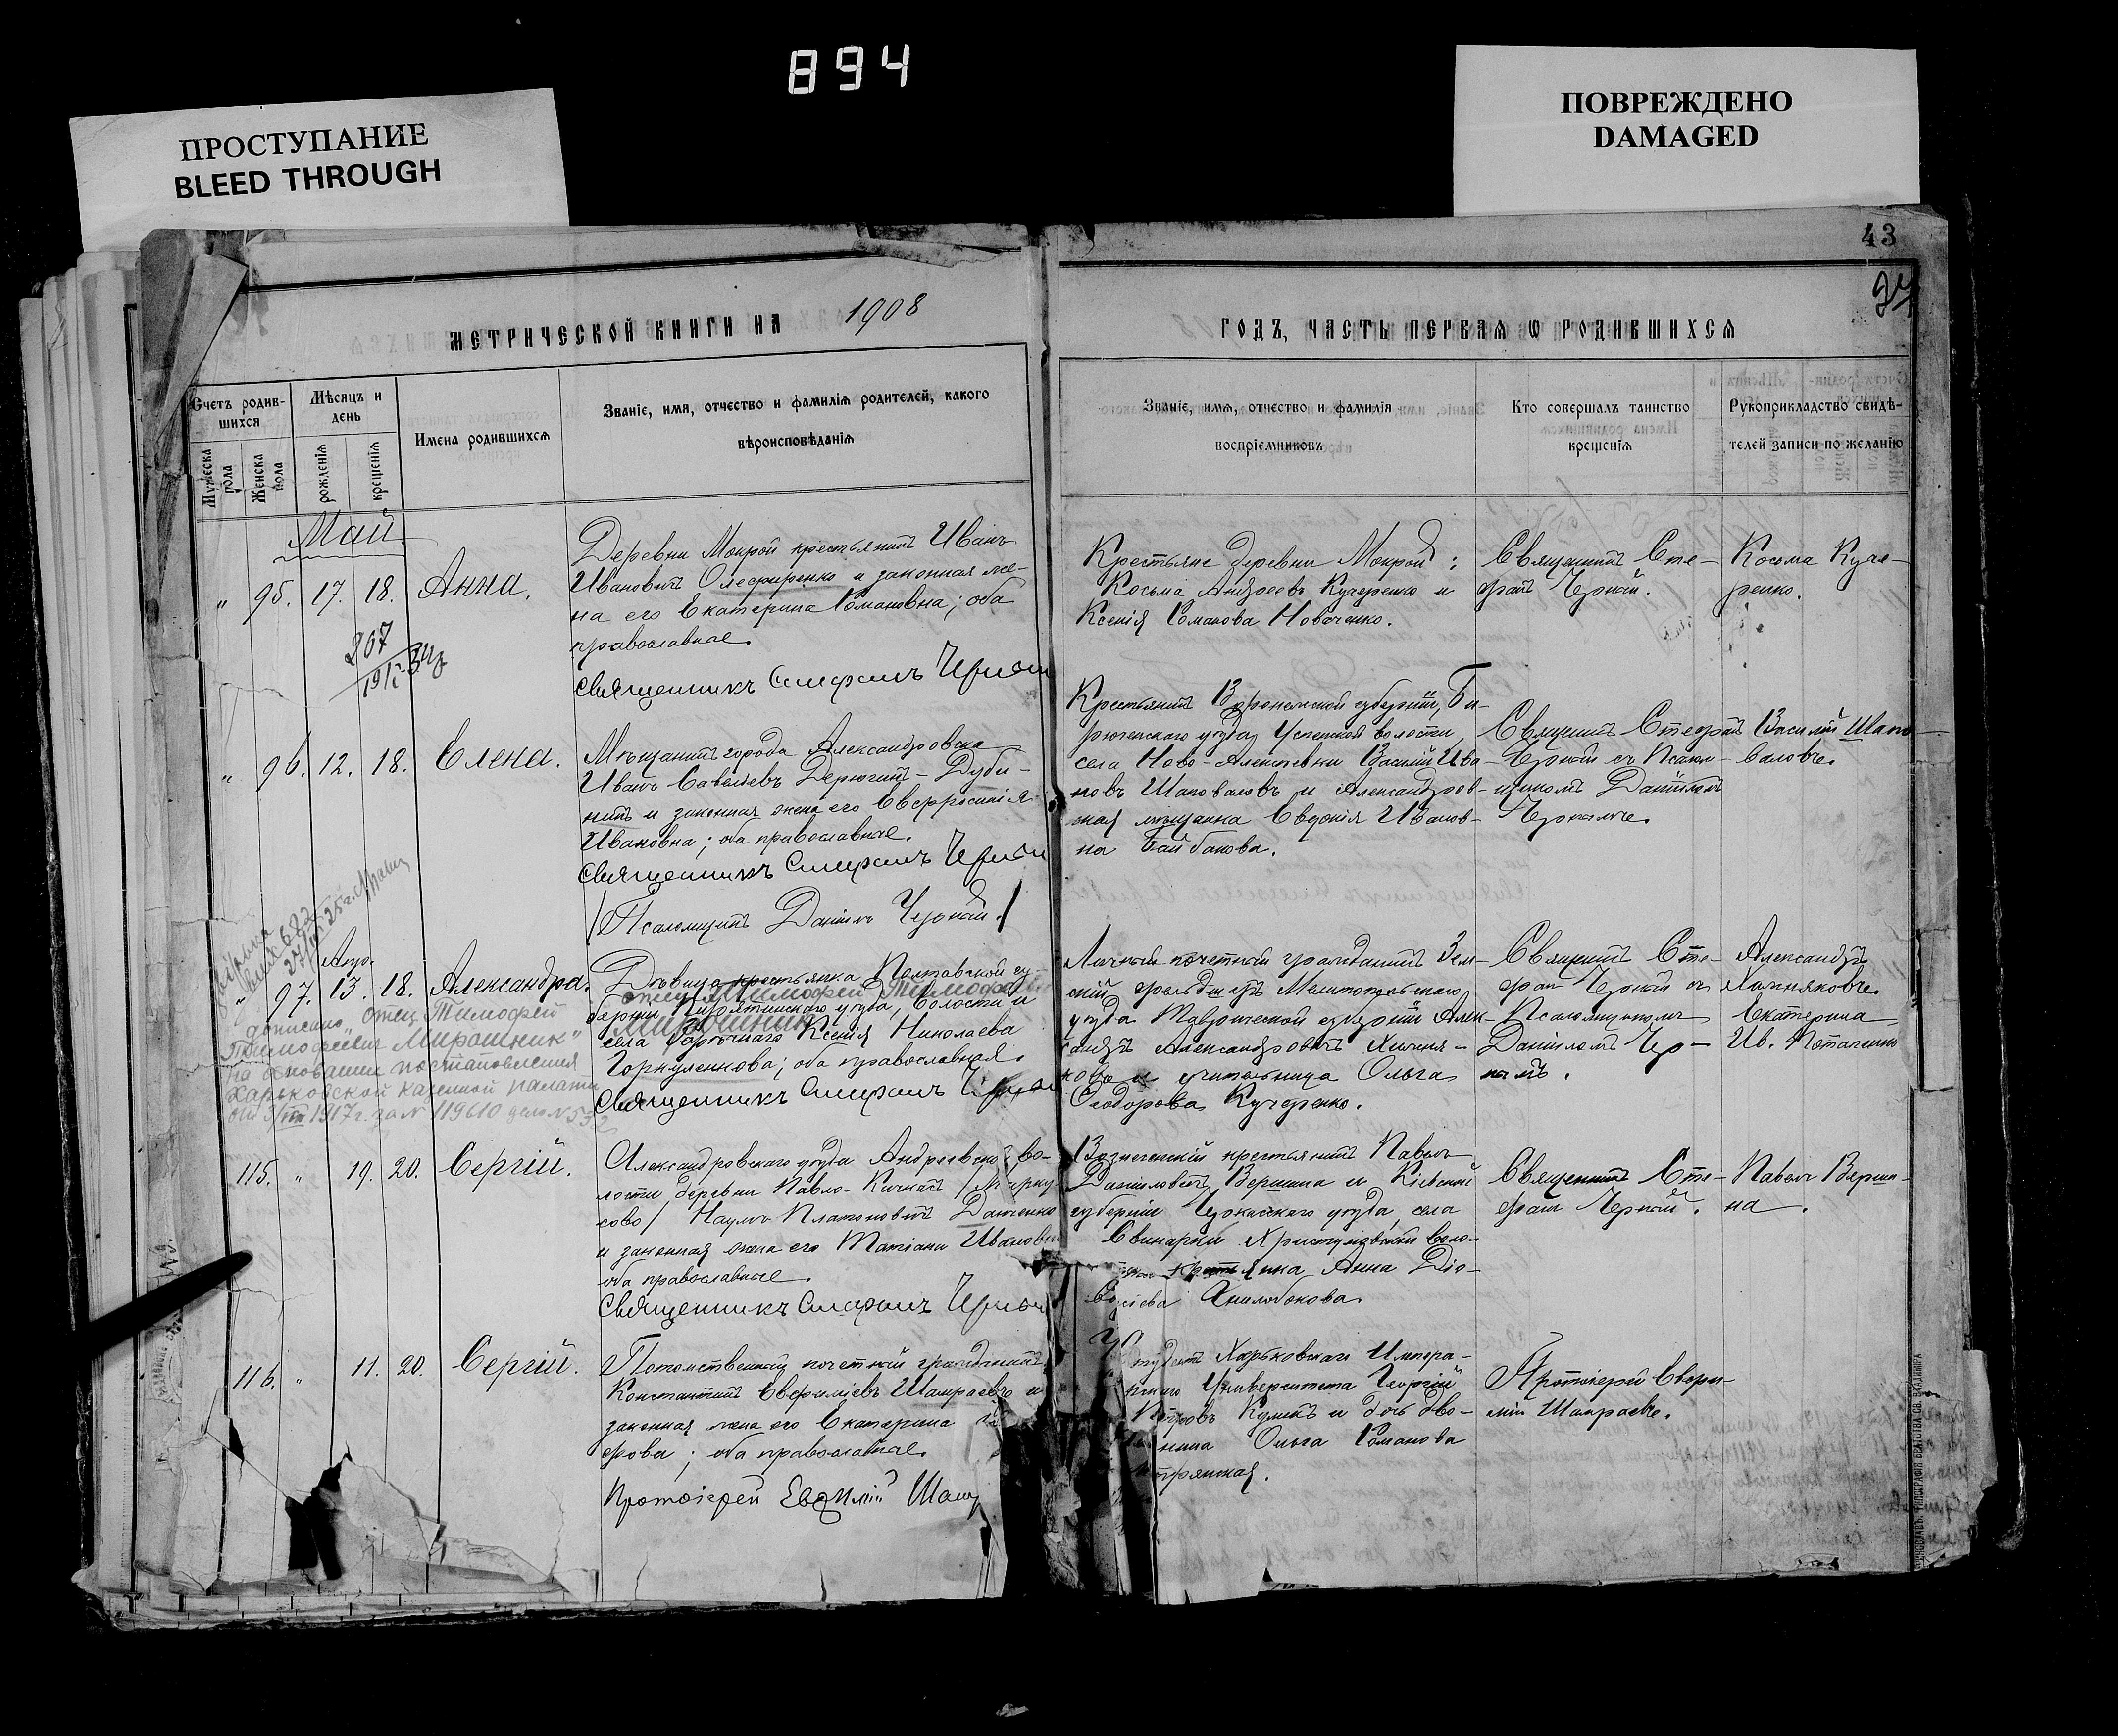 894
ПРОСТУПАНИЕ
BLEED THROUGH
ПОВРЕЖДЕНО
DAMAGED
43
МЕТРИЧЕСКОЙ КНИГИ НА 1908
ГОДЪ, ЧАСТЬ ПЕРВАЯ Ѡ РОДИВШИХСЯ
Счетъ родив-
шихся
Мужеска пола
Женска пола
Мѣсяцъ и
день
рожденія
крещенія
Имена родившихся
Званіе, имя, отчество и фамилія родителей, какого
вѣроисповѣданія
Званіе, имя, отчество и фамилія
воспріемниковъ
Кто совершалъ таинство
крещенія
Рукоприкладство свидѣ-
телей записи по желанію
Май
" 95. 17. 18. Анна.
Деревни Мокрой крестьянинъ Иванъ
Ивановичъ Олефиренко и законная же-
на его Екатерина Романовна; оба
православные.
Священникъ Стефанъ Черный
Крестьяне деревни Мокрой:
Косьма Андреевъ Кучеренко и
Ксенія Романова Новаченко.
Священникъ Сте-
фанъ Черный.
Косьма Куче-
ренко.
307
" 96. 12. 18. Елена.
Мѣщанинъ города Александровска
Иванъ Савельевъ Дерюгинъ-Дуби-
нинъ и законная жена его Евфросинія
Ивановна; оба православные.
Священникъ Стефанъ Черный
/Псаломщикъ Даніилъ Черный./
Крестьянинъ Воронежской губерніи, Би-
рюченскаго уѣзда, Успенской волости
села Ново-Алексѣевки Василій Ива-
новъ Шаповаловъ и Александров-
ская мѣщанка Евдокія Иванов-
на Байбакова.
Священникъ Стефанъ
Черный съ Псалом-
щикомъ Даніиломъ
Чернымъ.
Василій Шапо-
валовъ.
Апр.
" 97. 13. 18. Александра.
Дѣвица крестьянка Полтавской гу-
отец Тимофей Тимофеев
берніи Пирятинскаго уѣзда, волости и
Мирошник
села Ксенія Николаева
Горкуленкова; оба православная.
Священникъ Стефанъ Черный
дописано "отец Тимофей
Тимофеевич Мирошник"
на основании постановления
Харьковской казенной палаты
1917 г. за N 119610 дело N
Личный почетный гражданинъ Зем-
скій фельдшеръ Мелитопольскаго
уѣзда Таврической губерніи Алек-
сандръ Александровичъ Хижня-
ковъ и учительница Ольга
Ѳеодорова Кучеренко.
Священникъ Сте-
фанъ Черный съ
Псаломщикомъ
Даніиломъ Чер-
нымъ.
Александръ
Хижняковъ.
Екатерина
Ив. Потапенко
115. " 19. 20. Сергій.
Александровскаго уѣзда Андреевской во-
лости деревни Павло-Кичкасъ /Марку-
сово/ Наумъ Платоновичъ Данченко
и законная жена его Татіана Ивановна
оба православные.
Священникъ Стефанъ Черный
Вознесенскій крестьянинъ Павелъ
Даниловичъ Вершина и Кіевской
губерніи Черкасскаго уѣзда, села
Свинарки Христиновской воло-
крестьянка Анна Діо-
Хнилобокова.
Священникъ Сте-
фанъ Черный.
Павелъ Верши-
на.
116. " 11. 20. Сергій.
Потомственный почетный гражданинъ
Константинъ Евфиміевъ Шамраевъ и
законная жена его Екатерина
рова; оба православные.
Протоіерей Евфимій Шам
студентъ Харьковскаго Импера-
скаго Университета Георгій
Петровъ Куликъ и дочь дво-
нина Ольга Романова
Священникъ
Протоіерей Евфи-
мій Шамраевъ.